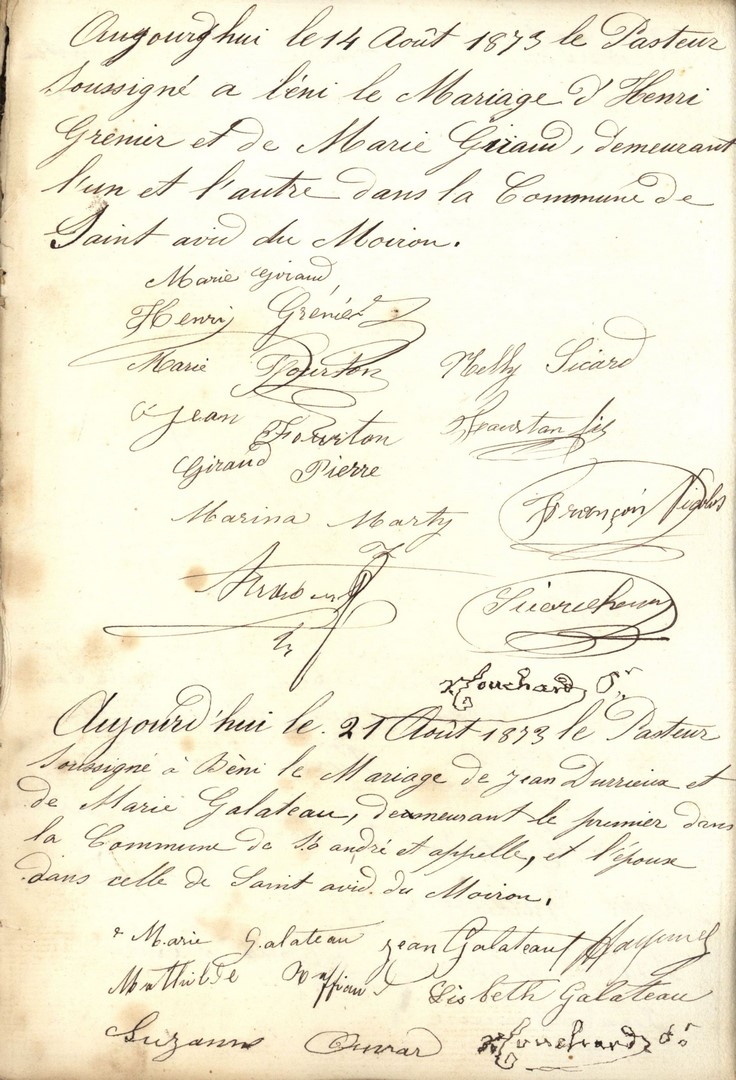 Aujourd'hui le 14 Août 1873 le Pasteur
soussigné a béni le Mariage d'Henri
Grenier et de Marie Giraud, demeurant
l'un et l'autre dans la Commune de
Saint avid du Moiron.
Marie Giraud
Henri Grénier
Marie Fourton Nelly Sicard
Jean Fourton fils
Giraud Pierre
Marina Marty François
Bouchard
Aujourd'hui le 21 Août 1873 le Pasteur
Soussigné à Bèni le Mariage de Jean Durrieux et
de Marie Galateau, demeurant le premier dans
la Commune de St andré et appelle, et l'épouse
dans celle de Saint avid du Moiron.
Marie Galateau Jean Galateau
Mathilde Lisbeth Galateau
Suzanne Bouchard